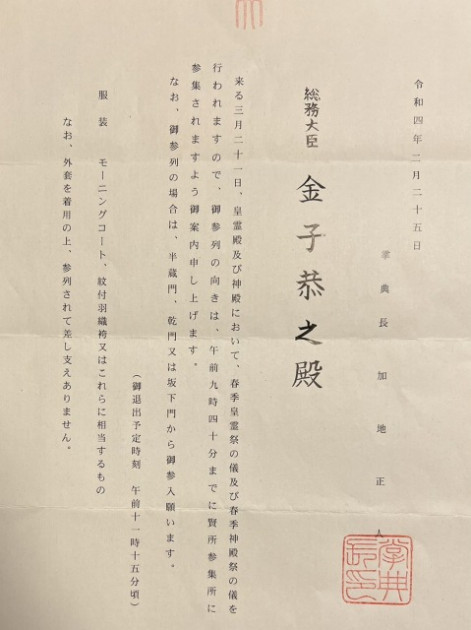 令和四年二月二十五日
掌典長 加地正人
総務大臣
金子恭之殿
来る三月二十一日、皇霊殿及び神殿において、春季皇霊祭の儀及び春季神殿祭の儀を
行われますので、御参列の向きは、午前九時四十分までに賢所参集所に
参集されますよう御案内申し上げます。
なお、御参列の場合は、半蔵門、乾門又は坂下門から御参入願います。
(御退出予定時刻 午前十一時十五分頃)
服装 モーニングコート、紋付羽織袴又はこれらに相当するもの
なお、外套を着用の上、参列されて差し支えありません。
掌典長印